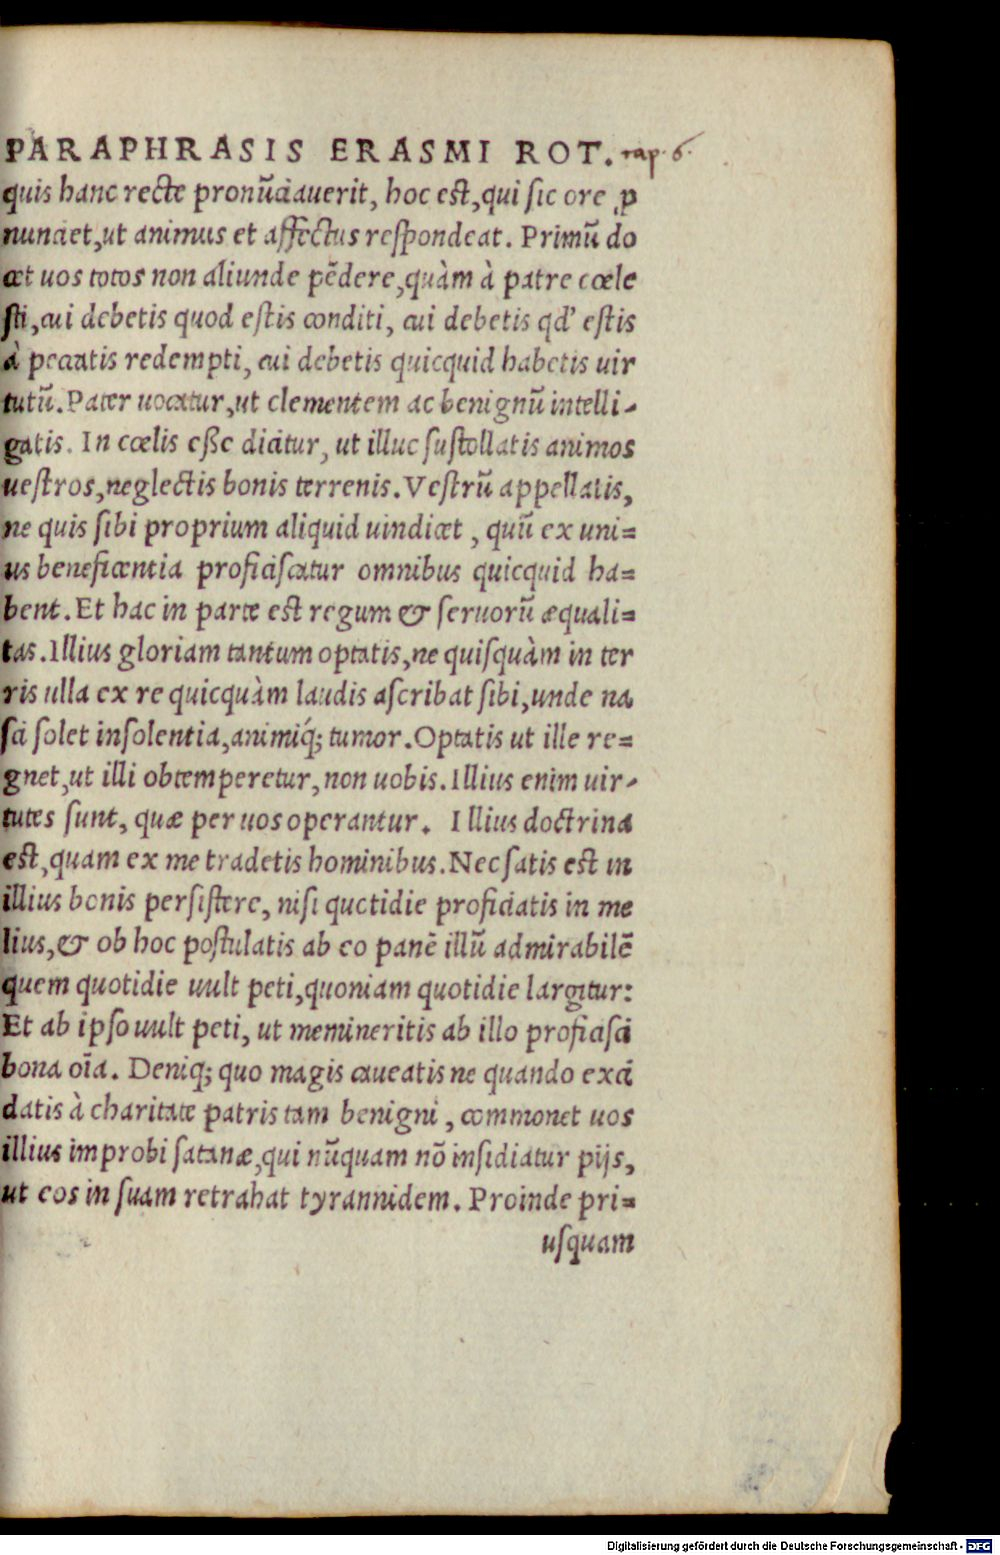 PARAPHRASIS ERASMI ROT. cap. 6.
quis hanc recte pronũciauerit, hoc est, qui sic ore ꝓ
nunciet, ut animus et affectus respondeat. Primũ do
cet uos totos non aliunde pẽdere, quàm à patre cœle
sti, cui debetis quod estis conditi, cui debetis qd' estis
à peccatis redempti, cui debetis quicquid habetis uir
tutũ. Pater uocatur, ut clementem ac benignũ intelli-
gatis. In cœlis eße dicitur, ut illuc sustollatis animos
uestros, neglectis bonis terrenis. Vestrũ appellatis,
ne quis sibi proprium aliquid uindicet, quũ ex uni=
us beneficentia proficiscatur omnibus quicquid ha=
bent. Et hac in parte est regum & seruorũ æquali=
tas. Illius gloriam tantum optatis, ne quisquàm in ter
ris ulla ex re quicquàm laudis ascribat sibi, unde na
sci solet insolentia, animiq́; tumor. Optatis ut ille re=
gnet, ut illi obtemperetur, non uobis. Illius enim uir-
tutes sunt, quæ per uos operantur. Illius doctrina
est, quam ex me tradetis hominibus. Nec satis est in
illius bonis persistere, nisi quotidie proficiatis in me
lius, & ob hoc postulatis ab eo panẽ illũ admirabilẽ
quem quotidie uult peti, quoniam quotidie largitur:
Et ab ipso uult peti, ut memineritis ab illo proficisci
bona oĩa. Deniq; quo magis caueatis ne quando exci
datis à charitate patris tam benigni, commonet uos
illius improbi satanæ, qui nũquam nõ insidiatur pijs,
ut eos in suam retrahat tyrannidem. Proinde pri=
usquam
Digitalisierung gefördert durch die Deutsche Forschungsgemeinschaft - DFG